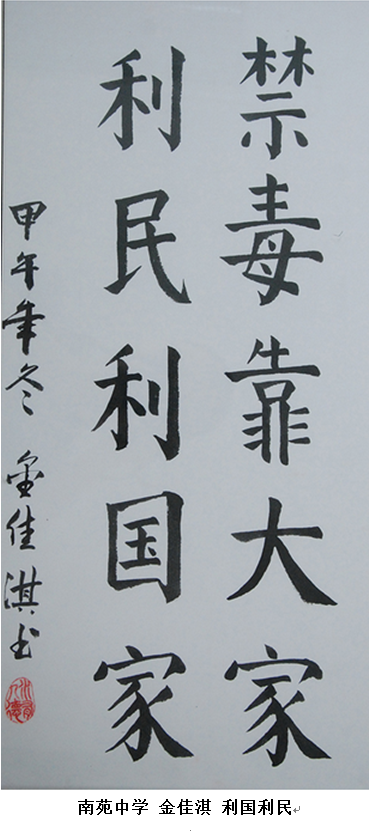 禁毒靠大家
利民利国家
甲午年冬 金佳淇书
南苑中学 金佳淇 利国利民